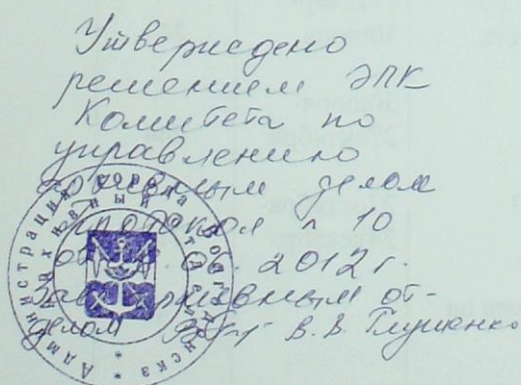 Утверждено
решением ЭПК
Комитета по
управлению
архивным делом
протокол № 10
от 06. 2012 г.
Зав. архивным от-
делом В. В. Глущенко
Администрация города Волгодонска
Архивный отдел